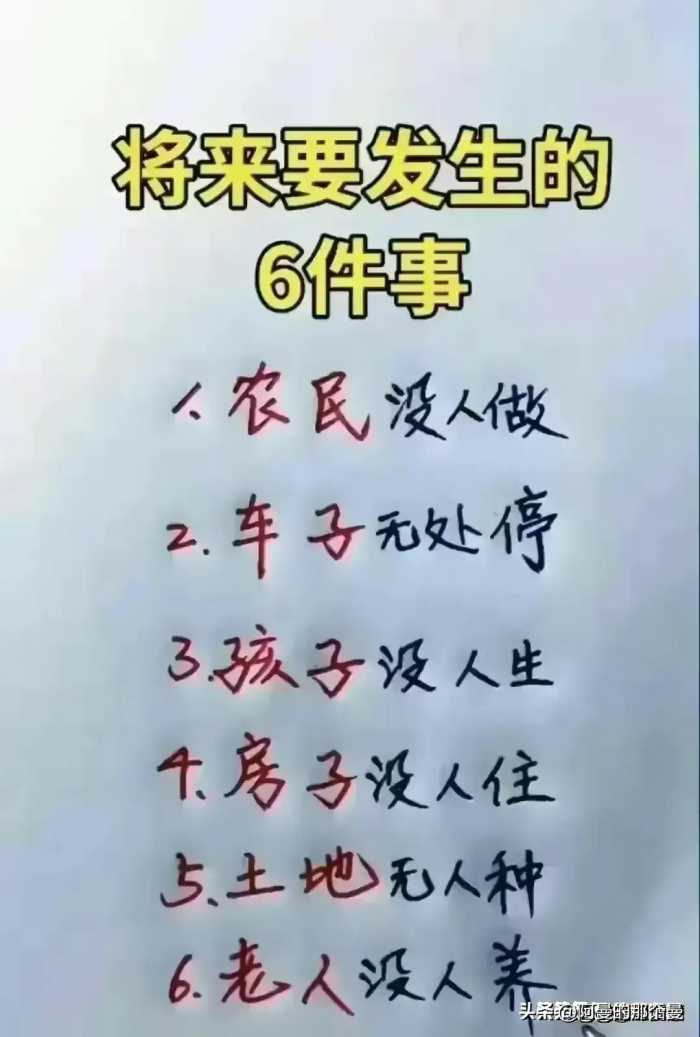 将来要发生的
6件事
1、农民没人做
2.车子无处停
3.孩子没人生
4、房子没人住
5.土地无人种
6.老人没人养
头条@阿曼的那颗曼